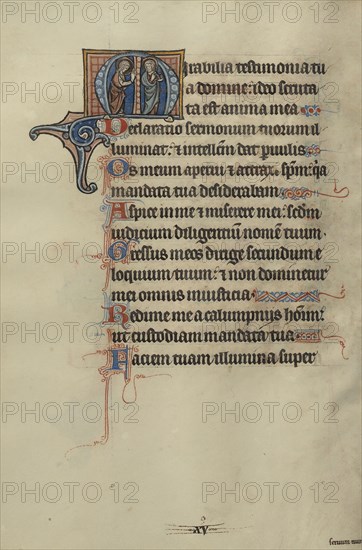 Mirabilia testimonia tu
a domine: ideo scruta
ta est anima mea
Declaratio sermonum tuorum il
luminat: & intellm̄ dat p̄uulis
Os meum aperui & attrax̄ sp̄m: q̄a
mandata tua desiderabam
Aspice in me & miserere mei: scd̄m
iudicium diligentiū nomen̄ tuum
Gressus meos dirige secundum e
loquium tuum: & non dominetur
mei omnis iniusticia
Redime me a calumpnijs hōm̄
ut custodiam mandata tua
Faciem tuam illumina super
xv
seruum
PHOTO 12